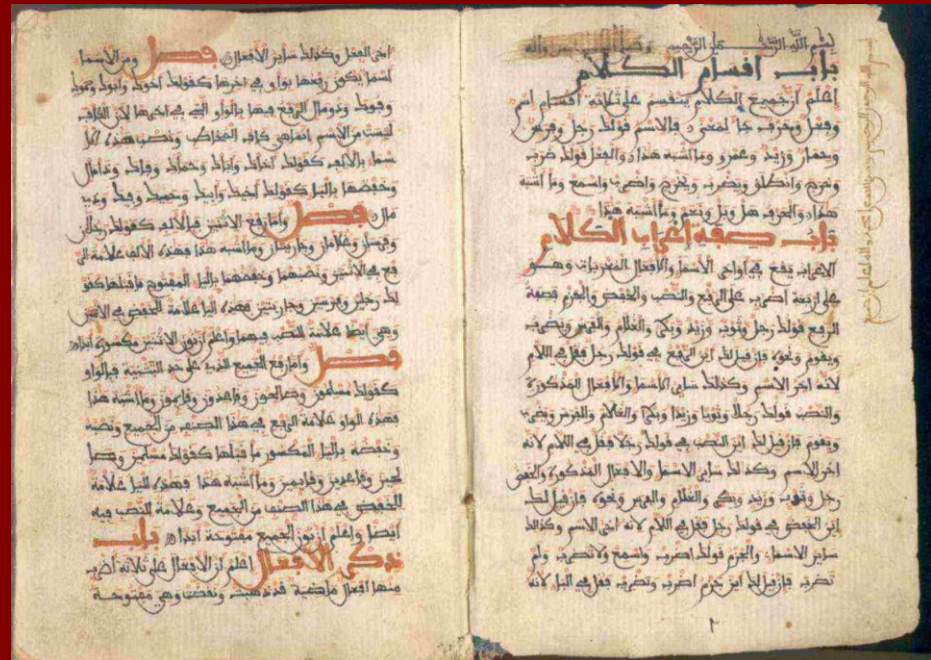 بسم الله الرحمن الرحيم وصلى الله
باب اقسام الكلام
اعلم ان جميع الكلام ينقسم على ثلاثة اقسام اسم
وفعل وحرف جا لمعنى فالاسم قولك رجل وفرس
وحمار وزيد وعمرو وما اشبه هذا والفعل قولك ضرب
وخرج وانطلق ويضرب ويخرج واضرب واسمع وما اشبه
هذا والحرف هل وبل ونعم وما اشبه هذا
باب صفة اعراب الكلام
الاعراب يقع في اواخر الاسما والافعال المعربات وهو
على اربعة اضرب على الرفع والنصب والخفض والجزم فصفة
الرفع قولك رجل وثوب وزيد وبكر والغلام والفرس ويضرب
ويقوم ونحوه فان قيل لك اين الرفع في قولك رجل فقل في اللام
لانه اخر الاسم وكذلك ساير الاسما والافعال المذكورة
والنصب قولك رجلا وثوبا وزيدا وبكرا والغلام والفرس ويضرب
ويقوم فان قيل لك اين النصب في قولك رجلا فقل في اللام لانه
اخر الاسم وكذلك ساير الاسما والافعال المذكورة والخفض
رجل وثوب وزيد وبكر والغلام والفرس ونحوه فان قيل لك
اين الخفض في قولك رجل فقل في اللام لانه اخر الاسم وكذلك
ساير الاسما والجزم قولك اضرب واسمع ولا تضرب ولم
تضرب فان قيل لك اين جزم اضرب وتضرب فقل في البا لانه
٢
اخر الفعل وكذلك ساير الافعال فصل ومن الاسما
اسما يكون رفعها بواو في اخرها كقولك اخوك وابوك وحموك
وفوك وذو مال الرفع فيها بالواو التي في اخرها لان الكاف
ليست من الاسم انما هي كاف المخاطب وتنصب هذه الا
سما بالالف كقولك اخاك واباك وحماك وفاك وذا مال
وتخفضها باليا كقولك اخيك وابيك وحميك وفيك وذي
مال فصل واما رفع الاثنين فبالالف كقولك رجلان
وفرسان وغلامان وجاريتان وما اشبه هذا فهذه الالف علامة الر
فع في الاثنين ونصبهما وخفضهما باليا المفتوح ما قبلها كقو
لك رجلين وفرسين وجاريتين فهذه اليا علامة الخفض في الاثنين
وهي ايضا علامة النصب فيهما واعلم ان نون الاثنين مكسورة ابدا
فصل واما رفع الجميع الذي على حد التثنية فبالواو
كقولك مسلمون وصالحون وقاعدون وقايمون وما اشبه هذا
فهذه الواو علامة الرفع في هذا الصنف من الجميع ونصبه
وخفضه باليا المكسور ما قبلها كقولك مسلمين وصا
لحين وقاعدين وقايمين وما اشبه هذا فهذه اليا علامة
الخفض في هذا الصنف من الجميع وعلامة النصب فيه
ايضا واعلم ان نون الجميع مفتوحة ابدا باب
ذكر الافعال اعلم ان الافعال على ثلاثة اضرب
منها افعال ماضية قد ذهبت وتقضت وهي مفتوحة